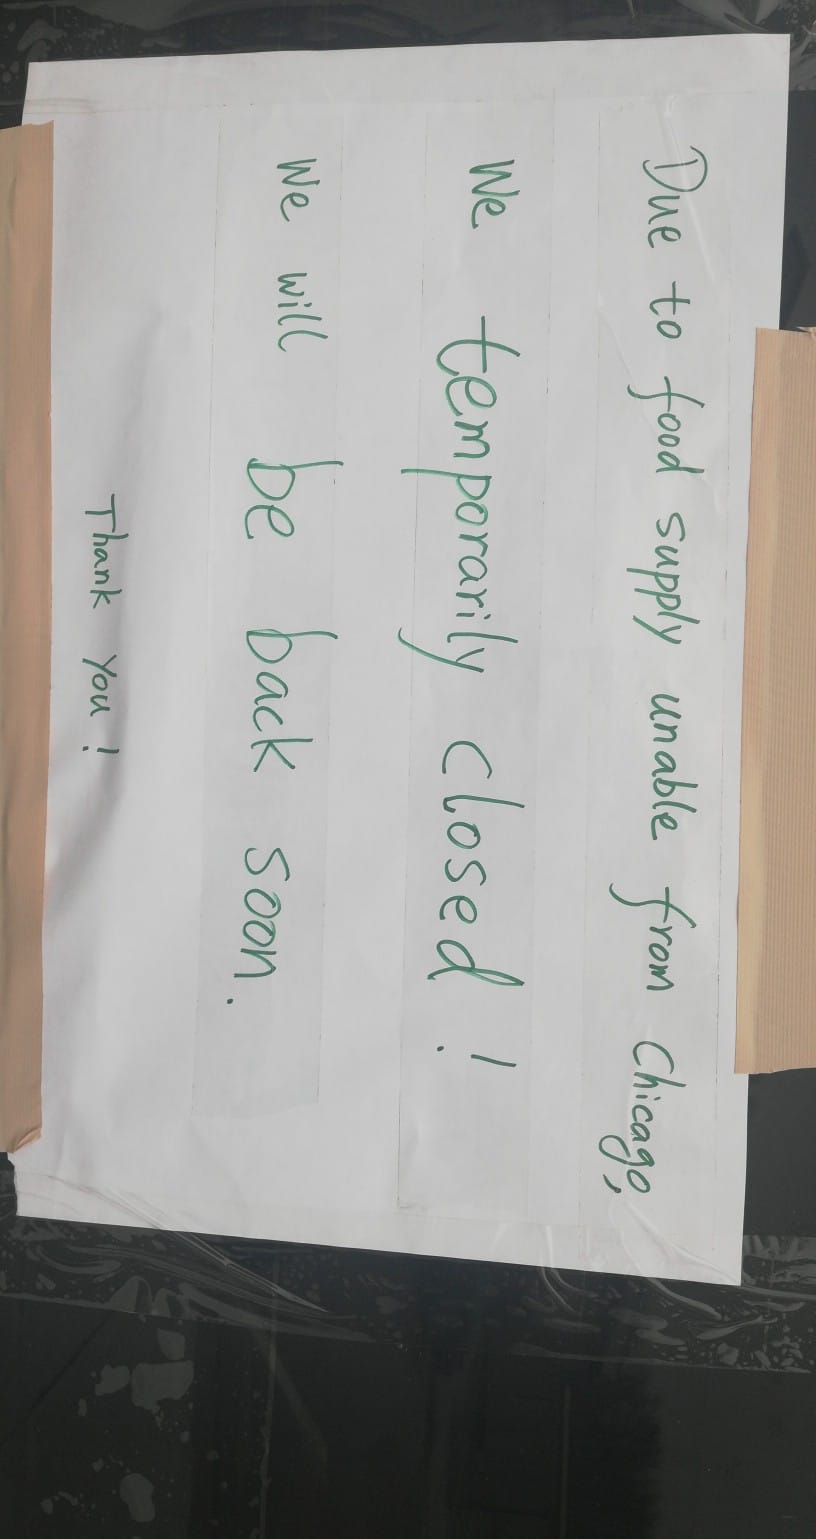 Due to food supply unable from Chicago,
We temporarily closed!
We will be back soon.
Thank you!